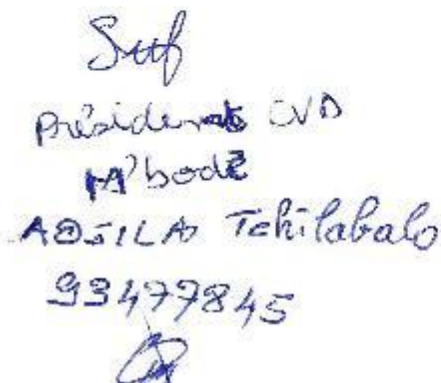 Suf
Président CVD
M'bodè
Tchilabalo
93477845